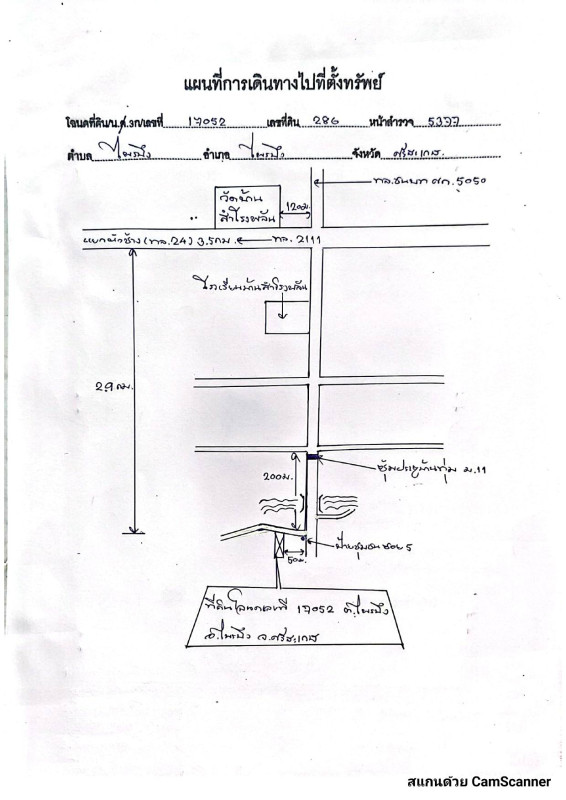 แผนที่การเดินทางไปที่ตั้งทรัพย์
โฉนดที่ดิน/น.ส.3ก/เลขที่ 17052 เลขที่ดิน 286 หน้าสำรวจ 5377
ตำบล ไพรบึง อำเภอ ไพรบึง จังหวัด ศรีสะเกษ
ทล.ชนบท ศก.5050
วัดบ้าน
สำโรงพลัน
120ม.
แยกหัวช้าง (ทล.24) 3.5กม. ทล. 2111
โรงเรียนบ้านสำโรงพลัน
2.9 กม.
ซุ้มประตูบ้านทุ่ม ม.11
200ม.
ป้ายชุมชน ซอย 5
50ม.
ที่ดินโฉนดเลขที่ 17052 ต.ไพรบึง
อ.ไพรบึง จ.ศรีสะเกษ
สแกนด้วย CamScanner